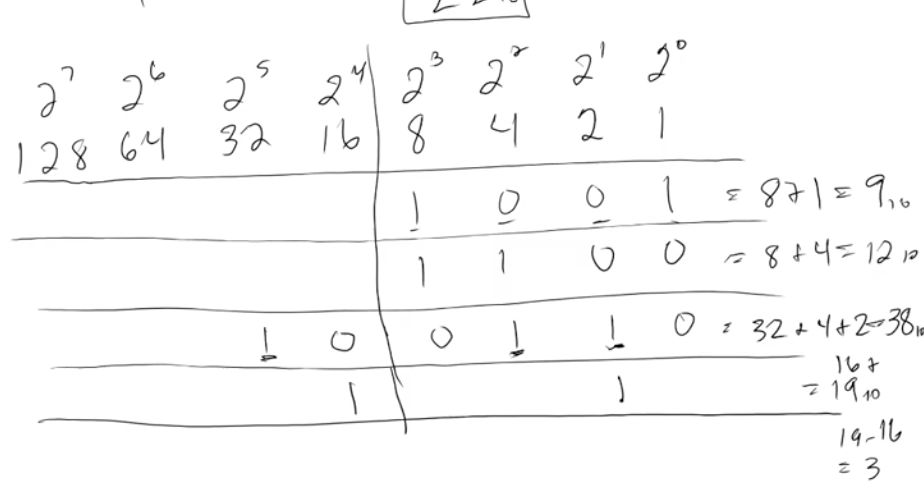 2⁷ 2⁶ 2⁵ 2⁴ 2³ 2² 2¹ 2⁰
128 64 32 16 8 4 2 1
1 0 0 1 = 8+1 = 9₁₀
1 1 0 0 = 8+4 = 12₁₀
1 0 0 1 1 0 = 32+4+2=38₁₀
16+
1 1 = 19₁₀
19-16
= 3